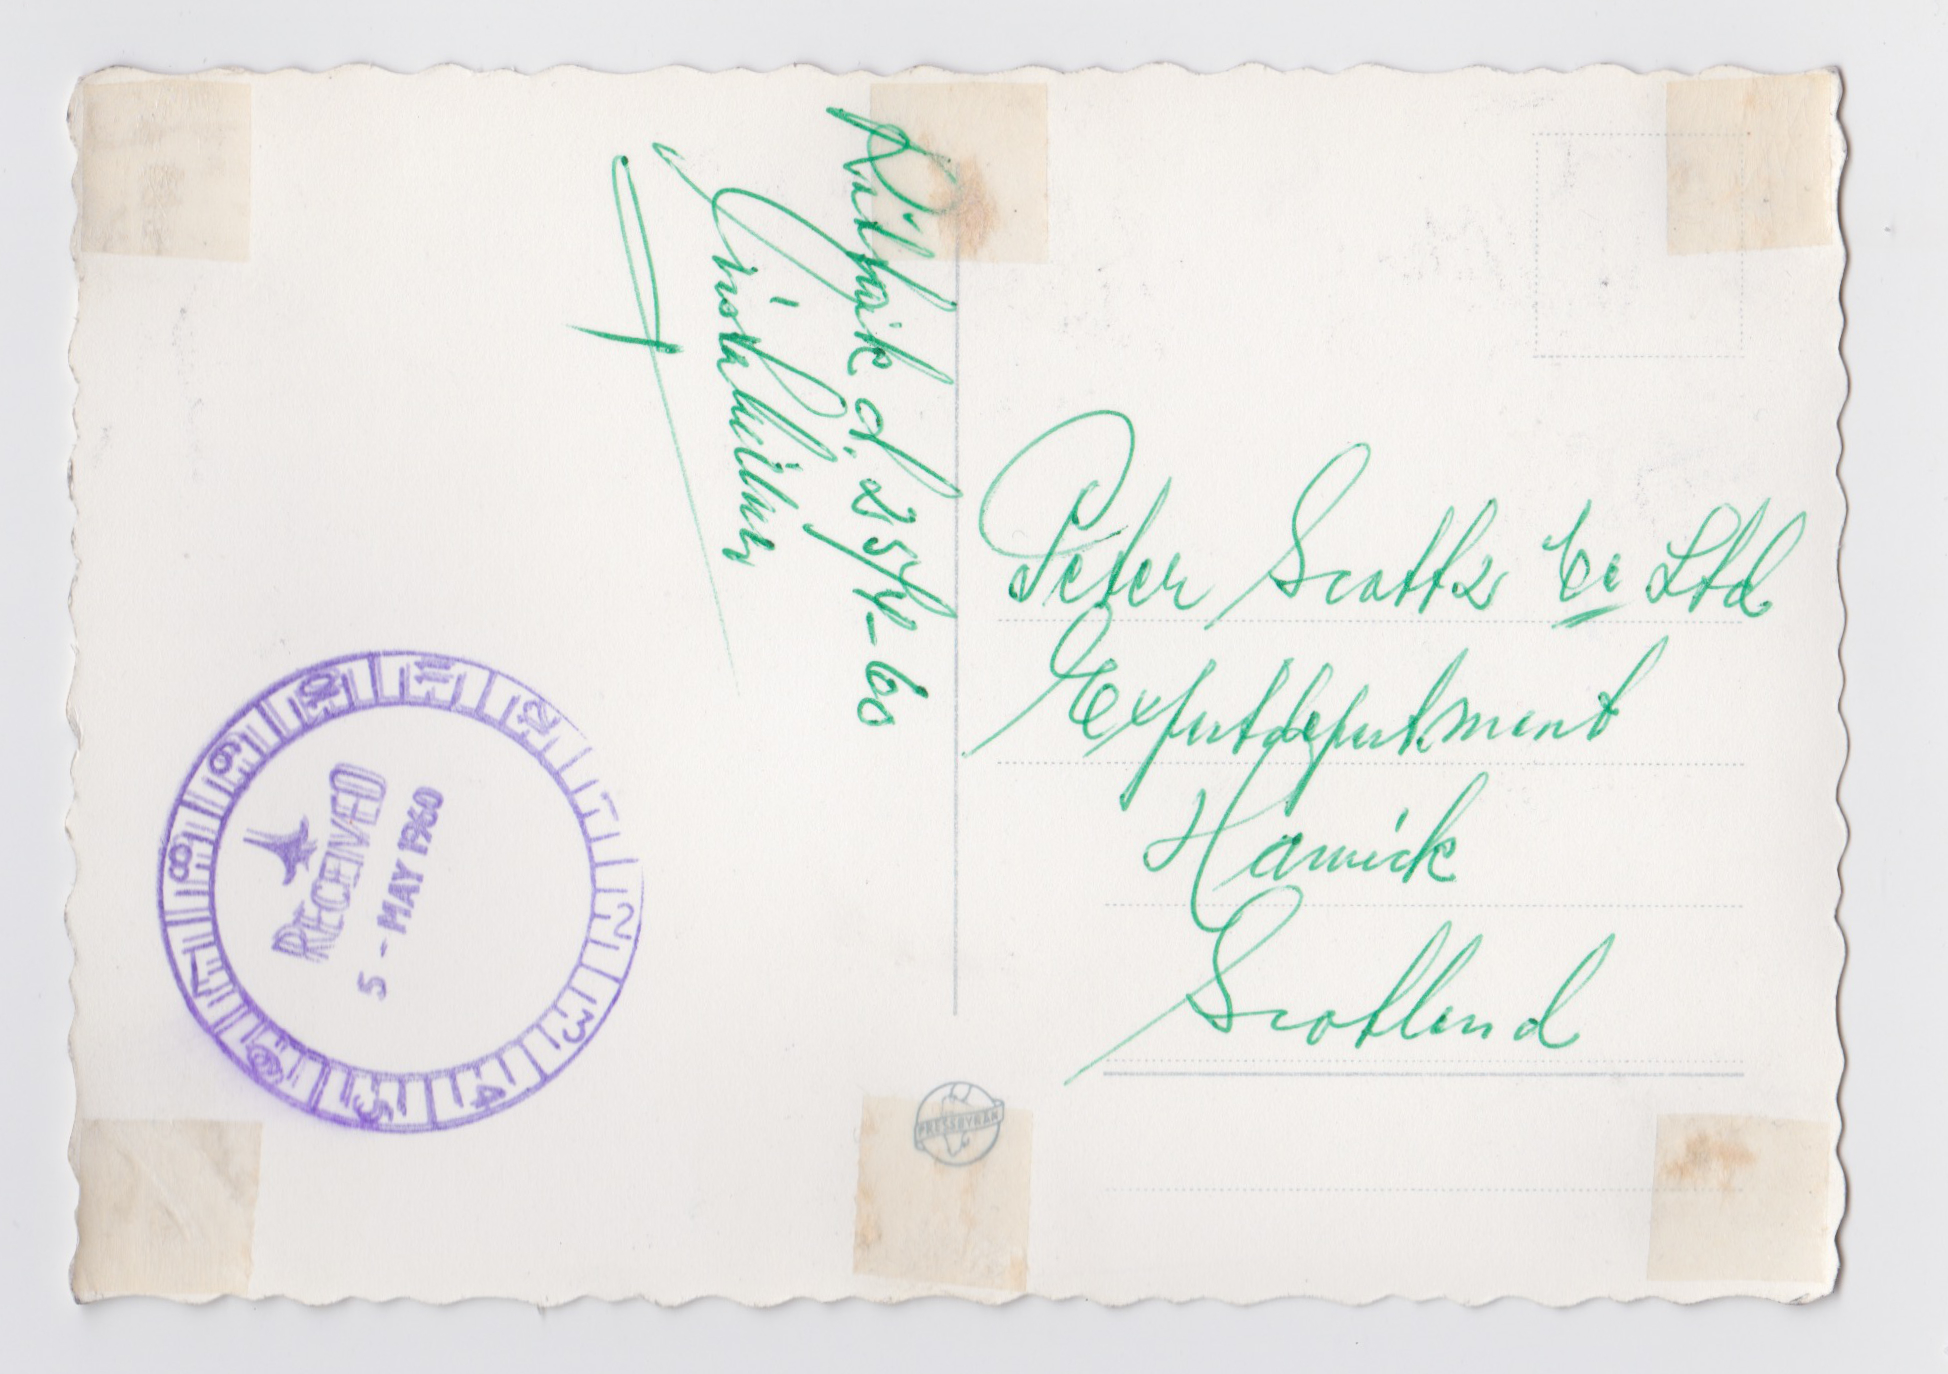 d. 25/4-60
Peter Scott & Co Ltd
Exportdepartment
Hawick
Scotland
PRESSBYRÅN
10 11 12 1 2 3 4 5 6 7 8 9
RECEIVED
5 - MAY 1960